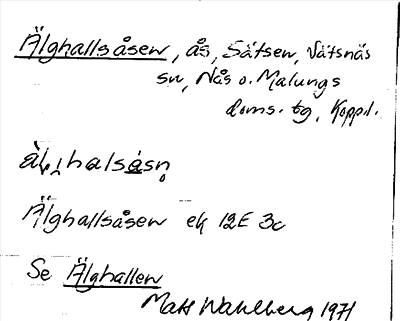 Älghallsåsen, ås, Sätsen, Vätsnäs
sn, Nås o. Malungs
doms. tg, Kopp.l.
Älghallsåsen ek 12E 3c
Se Älghallen
Mats Wahlberg 1971